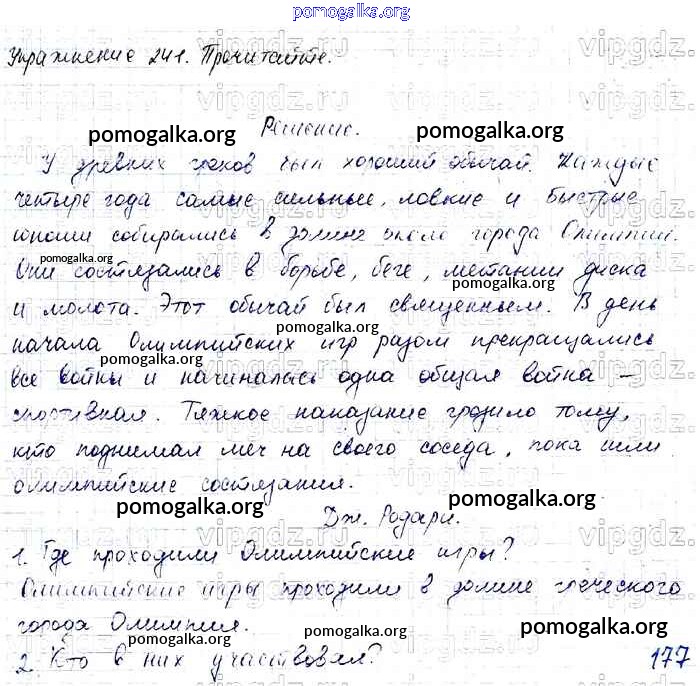 pomogalka.org
Упражнение 241. Прочитайте.
Решение.
pomogalka.org pomogalka.org
У древних греков был хороший обычай. Каждые
четыре года самые сильные, ловкие и быстрые
юноши собирались в долине около города Олимпии.
pomogalka.org
Они состязались в борьбе, беге, метании диска
и молота. Этот обычай был священным. В день
pomogalka.org
начала Олимпийских игр разом прекращались
pomogalka.org
все войны и начиналась одна общая война –
спортивная. Тяжкое наказание грозило тому,
кто поднимал меч на своего соседа, пока шли
олимпийские состязания.
pomogalka.org pomogalka.org
Дж. Родари.
1. Где проходили Олимпийские игры?
Олимпийские игры проходили в долине греческого
pomogalka.org
города Олимпия.
pomogalka.org pomogalka.org
2. Кто в них участвовал?
177
vipgdz.ru